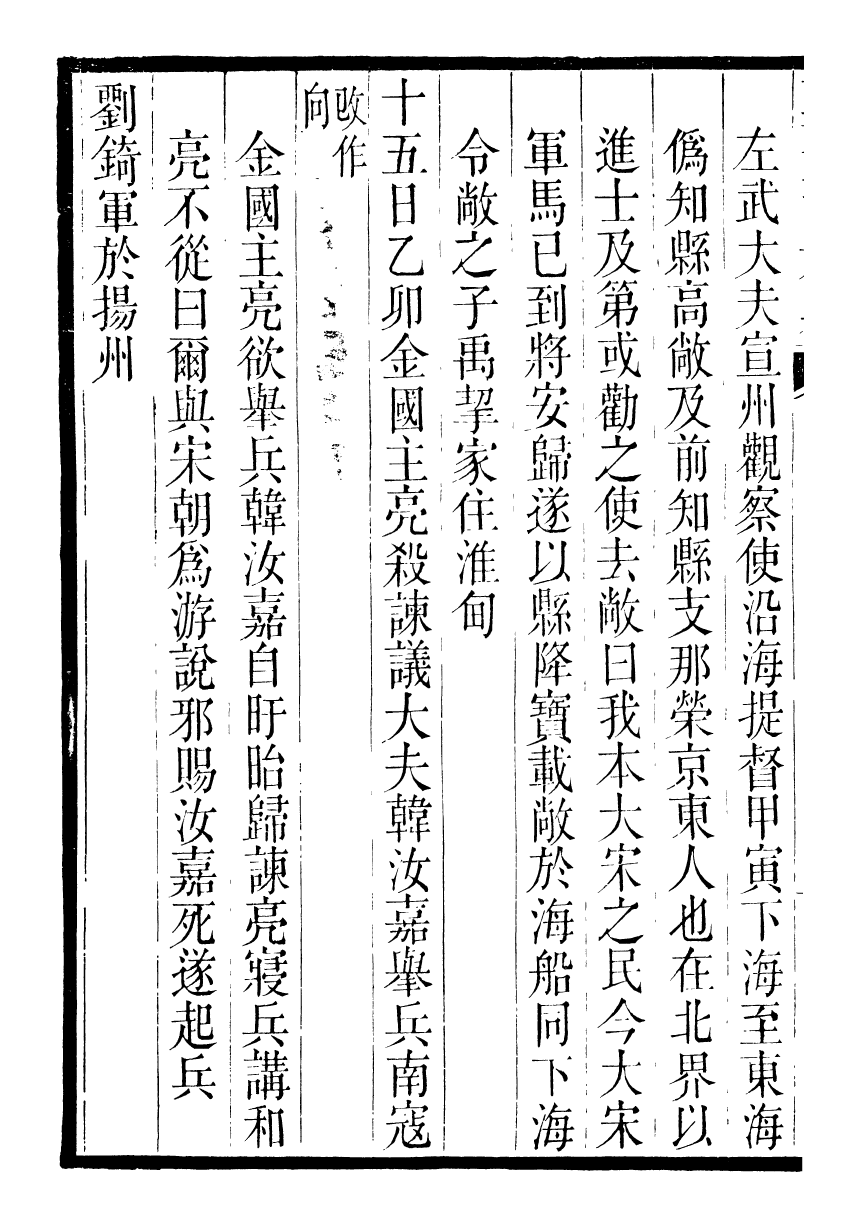 左武大夫宣州觀察使沿海提督甲寅下海至東海
僞知縣高敞及前知縣支那榮京東人也在北界以
進士及第或勸之使去敞曰我本大宋之民今大宋
軍馬已到將安歸遂以縣降寶載敞於海船同下海
令敞之子禹挈家住淮甸
十五日乙卯金國主亮殺諫議大夫韓汝嘉舉兵南寇
改作
向
金國主亮欲舉兵韓汝嘉自盱眙歸諫亮寢兵講和
亮不從曰爾與宋朝爲游說邪賜汝嘉死遂起兵
劉錡軍於揚州